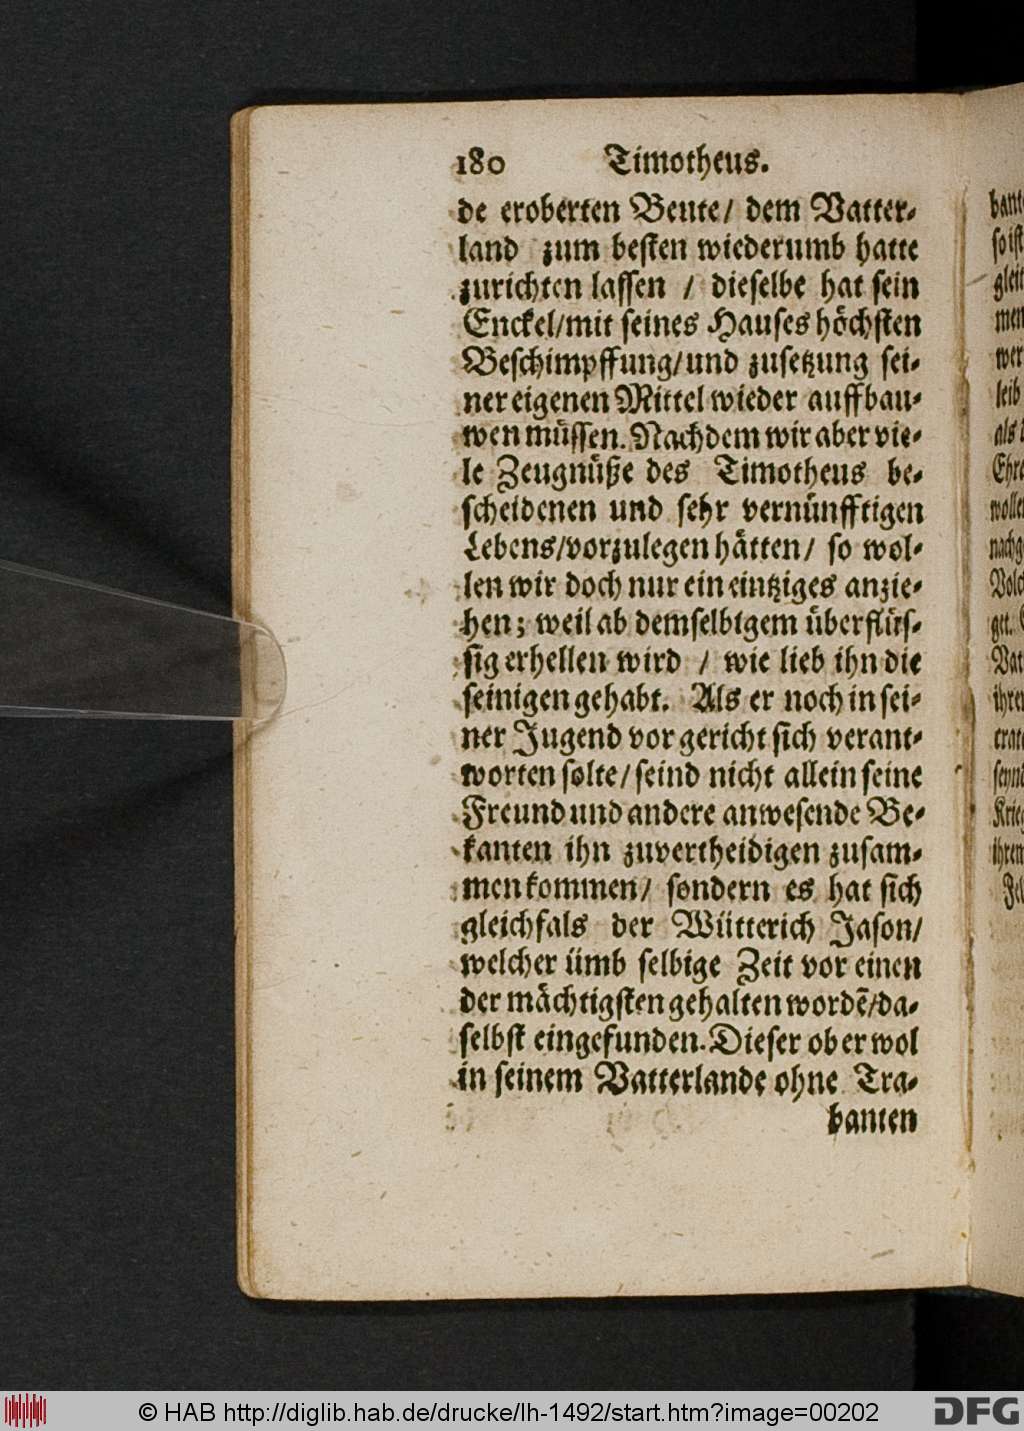 180 Timotheus.
de eroberten Beute/ dem Vatter-
land zum besten wiederumb hatte
zurichten lassen / dieselbe hat sein
Enckel/mit seines Hauses höchsten
Beschimpffung/und zusetzung sei-
ner eigenen Mittel wieder auffbau-
wen müssen. Nachdem wir aber vie-
le Zeugnüße des Timotheus be-
scheidenen und sehr vernünfftigen
Lebens/vorzulegen hätten/ so wol-
len wir doch nur ein eintziges anzie-
hen; weil ab demselbigem überflüs-
sig erhellen wird / wie lieb ihn die
seinigen gehabt. Als er noch in sei-
ner Jugend vor gericht sich verant-
worten solte/ seind nicht allein seine
Freund und andere anwesende Be-
kanten ihn zuvertheidigen zusam-
men kommen/ sondern es hat sich
gleichfals der Wütterich Jason/
welcher ümb selbige Zeit vor einen
der mächtigsten gehalten wordē/da-
selbst eingefunden. Dieser ob er wol
in seinem Vatterlande ohne Tra-
banten
© HAB http://diglib.hab.de/drucke/lh-1492/start.htm?image=00202
DFG